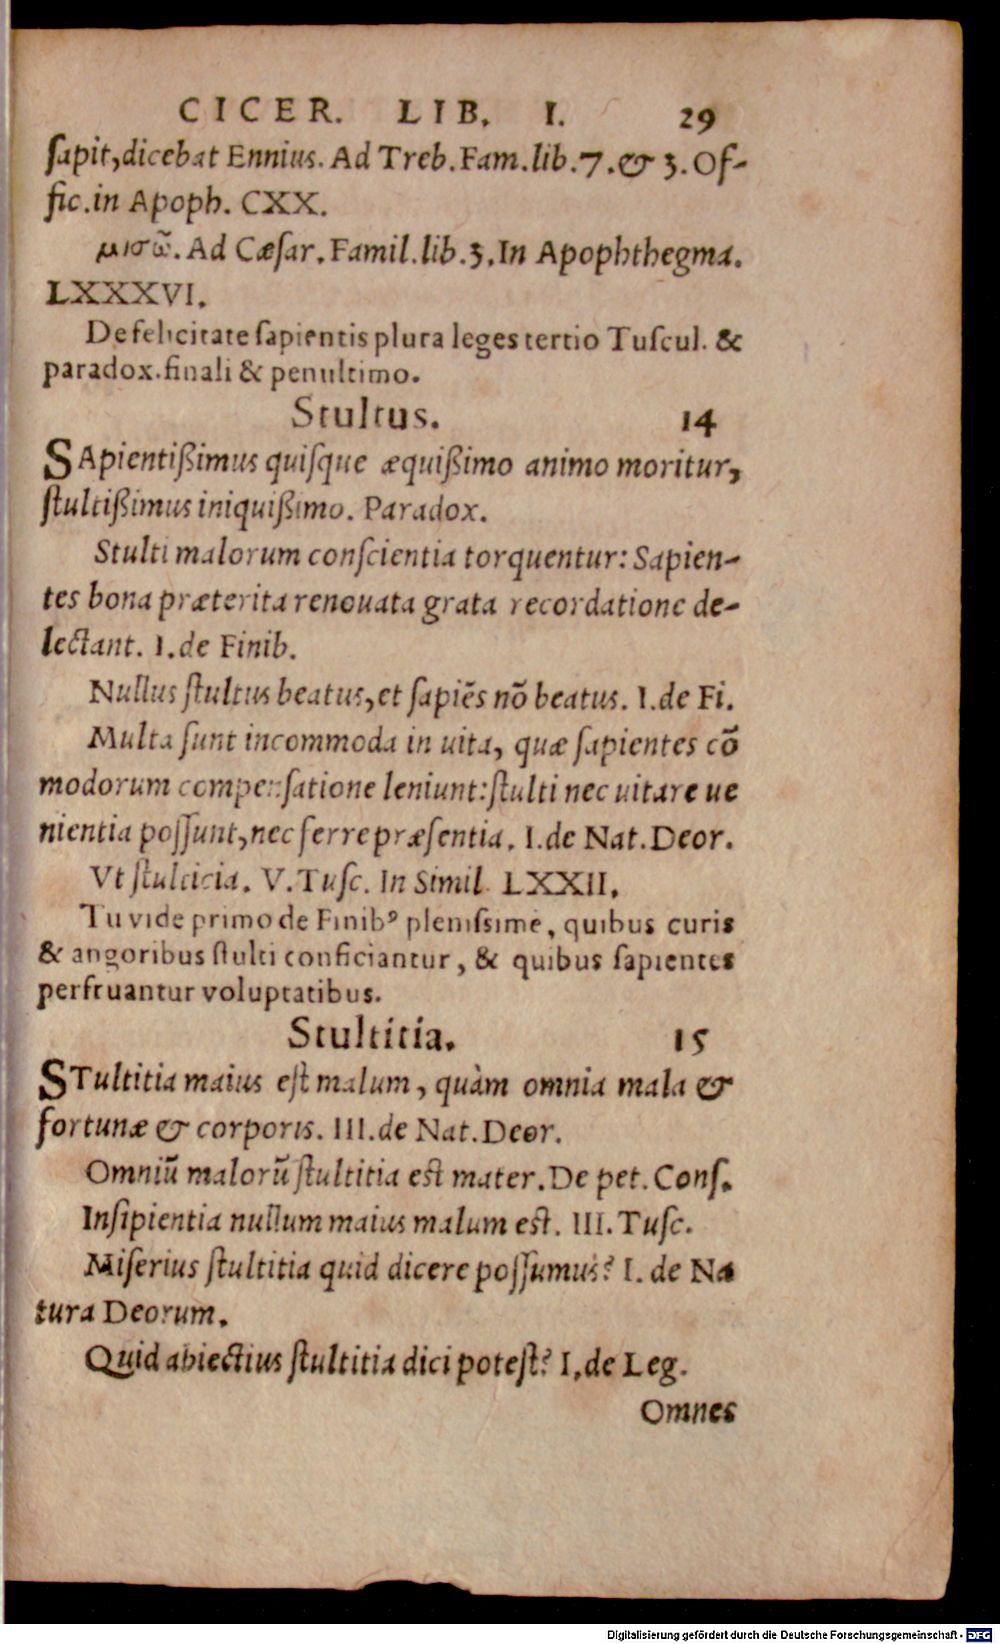 CICER. LIB. I. 29
sapit, dicebat Ennius. Ad Treb. Fam. lib. 7. & 3. Of-
fic. in Apoph. CXX.
μισῶ. Ad Cæsar. Famil. lib. 3. In Apophthegma.
LXXXVI.
De felicitate sapientis plura leges tertio Tuscul. &
paradox. finali & penultimo.
Stultus. 14
SApientißimus quisque æquißimo animo moritur,
stultißimus iniquißimo. Paradox.
Stulti malorum conscientia torquentur: Sapien-
tes bona præterita renouata grata recordatione de-
lectant. I. de Finib.
Nullus stultus beatus, et sapiẽs nõ beatus. I. de Fi.
Multa sunt incommoda in uita, quæ sapientes cõ
modorum compensatione leniunt: stulti nec uitare ue
nientia possunt, nec ferre præsentia. I. de Nat. Deor.
Vt stulticia. V. Tusc. In Simil. LXXII.
Tu vide primo de Finibꝰ plenissime, quibus curis
& angoribus stulti conficiantur, & quibus sapientes
perfruantur voluptatibus.
Stultitia. 15
STultitia maius est malum, quàm omnia mala &
fortunæ & corporis. III. de Nat. Deor.
Omniũ malorũ stultitia est mater. De pet. Cons.
Insipientia nullum maius malum est. III. Tusc.
Miserius stultitia quid dicere possumus? I. de Na
tura Deorum.
Quid abiectius stultitia dici potest? I. de Leg.
Omnes
Digitalisierung gefördert durch die Deutsche Forschungsgemeinschaft - DFG